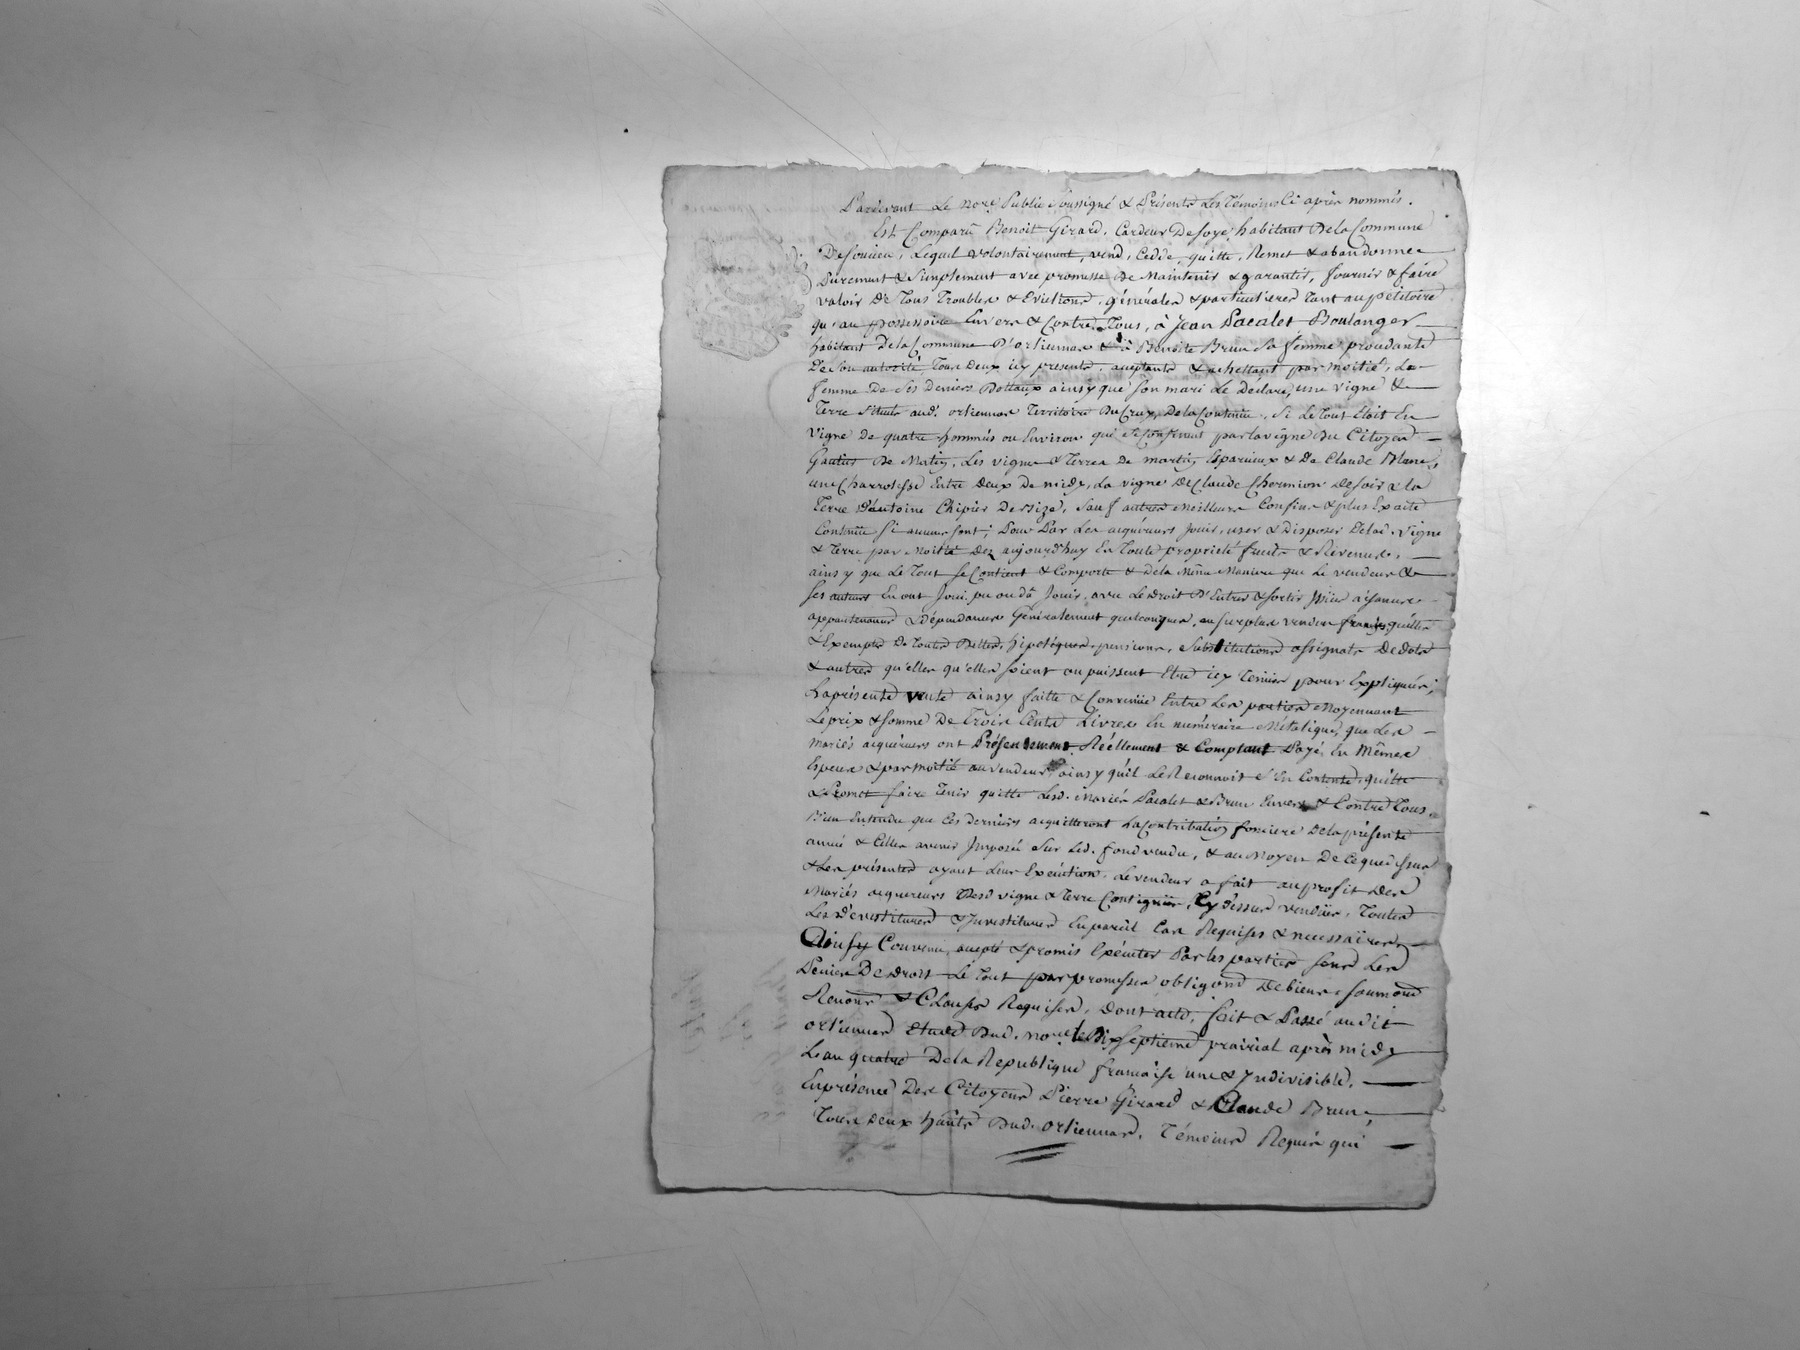 Pardevant Le nore. Public soussigné & Présents Les Témoins Ci après nommés.
Est Comparû Benoit Girard, Cardeur De soye, habitant De la Commune
De Soucieu, Lequel volontairement, vend, Cedde, quitte, Remet & abandonne
Purement & Simplement avec promesse De Maintenir & garantir, fournir & faire
valoir De Tous Troubles & Evictions, générales & particulieres Tant au petitoire
qu'au possessoire Envers & Contre Tous, à Jean Pacalet Boulanger
habitant De la Commune D'orlienas & à Benoite Brun Sa femme procedante
De Son autorité, Tous Deux icy presents, aceptants & achettant par moitié, La
femme De Ses Deniers Dottaux ainsy que Son mari Le Déclare, une vigne &
Terre Située aud. orlienas Territoire Du Crux, De la Contenue, Si Le Tout Etoit En
vigne De quatre hommées ou Environ qui Se Confinent par la vigne Du Citoyen
De Matin, Les vignes & Terres De martin Esparieux & De Claude Blanc,
une Charroisse Entre Deux De midy, La vigne De Claude Chermion De Soir & la
Terre D'antoine Chipier De Bize, Sauf autres Meilleurs Confins & plus Exacte
Contenue Si aucuns sont; Pour Par Les aquéreurs Jouir, user & Disposer De lad. vigne
& Terre par Moitié Dez aujourd'huy En Toute propriété fruits & Révenus,
ainsy que Le Tout Se Contient & Comporte & De la Même Maniere que Le vendeur &
Ses auteurs En ont Joui, pu ou dû Jouir, avec Le Droit D'Entrer & Sortir aisances
appartenances & Dépendances Généralement quelconques, au surplus vendus francs, quittes
& Exempts De Toutes Dettes, hipotéques, pensions, Substitutions assignats De dots
& autres qu'elles qu'elles soient ou puissent Etre icy Tenües pour Expliquées;
La présente vente ainsy faitte & Convenüe Entre Les parties Moyennant
Le prix & Somme De Trois Cents Livres En numéraire Métalique, que Les
Mariés aquéreurs ont Présentement Réellement & Comptant Payé En Mêmes
Especes & par moitié au vendeur ainsy qu'il Le Reconnoit s'En Contente, quitte
& Promet faire Tenir quitte Lesd. Mariés Pacalet & Brun Envers & Contre Tous,
Bien Entendu que Ces Derniers aquitteront La Contribution fonciere De la présente
année & Celles avenir Imposée Sur Led. fond vendu, & au Moyen De Ce que dessus
& Les présentes ayant Leur Exécution, Le vendeur a fait au profit Des
Mariés aquereurs Desd vigne & Terre Contiguës, Cy Dessus vendües, Toutes
Les Devestitures & Investitures En pareil Cas Requises & necessaires
Ainsy Convenu, accepté & promis Exécuter Par les parties Sous Les
Peines De Droit Le Tout par promesses obligons De biens, Soumons
Renons & Clauses Requises, Dont acte, fait & Passé audit
orlienas Etude Dud. nore. le Dix Septieme prairial après midy
L'an quatre De la Republique française une & Indivisible.
En présence Des Citoyens Pierre Girard & Claude Brun,
Tous Deux hants Dud. orlienas, Témoins Requis qui